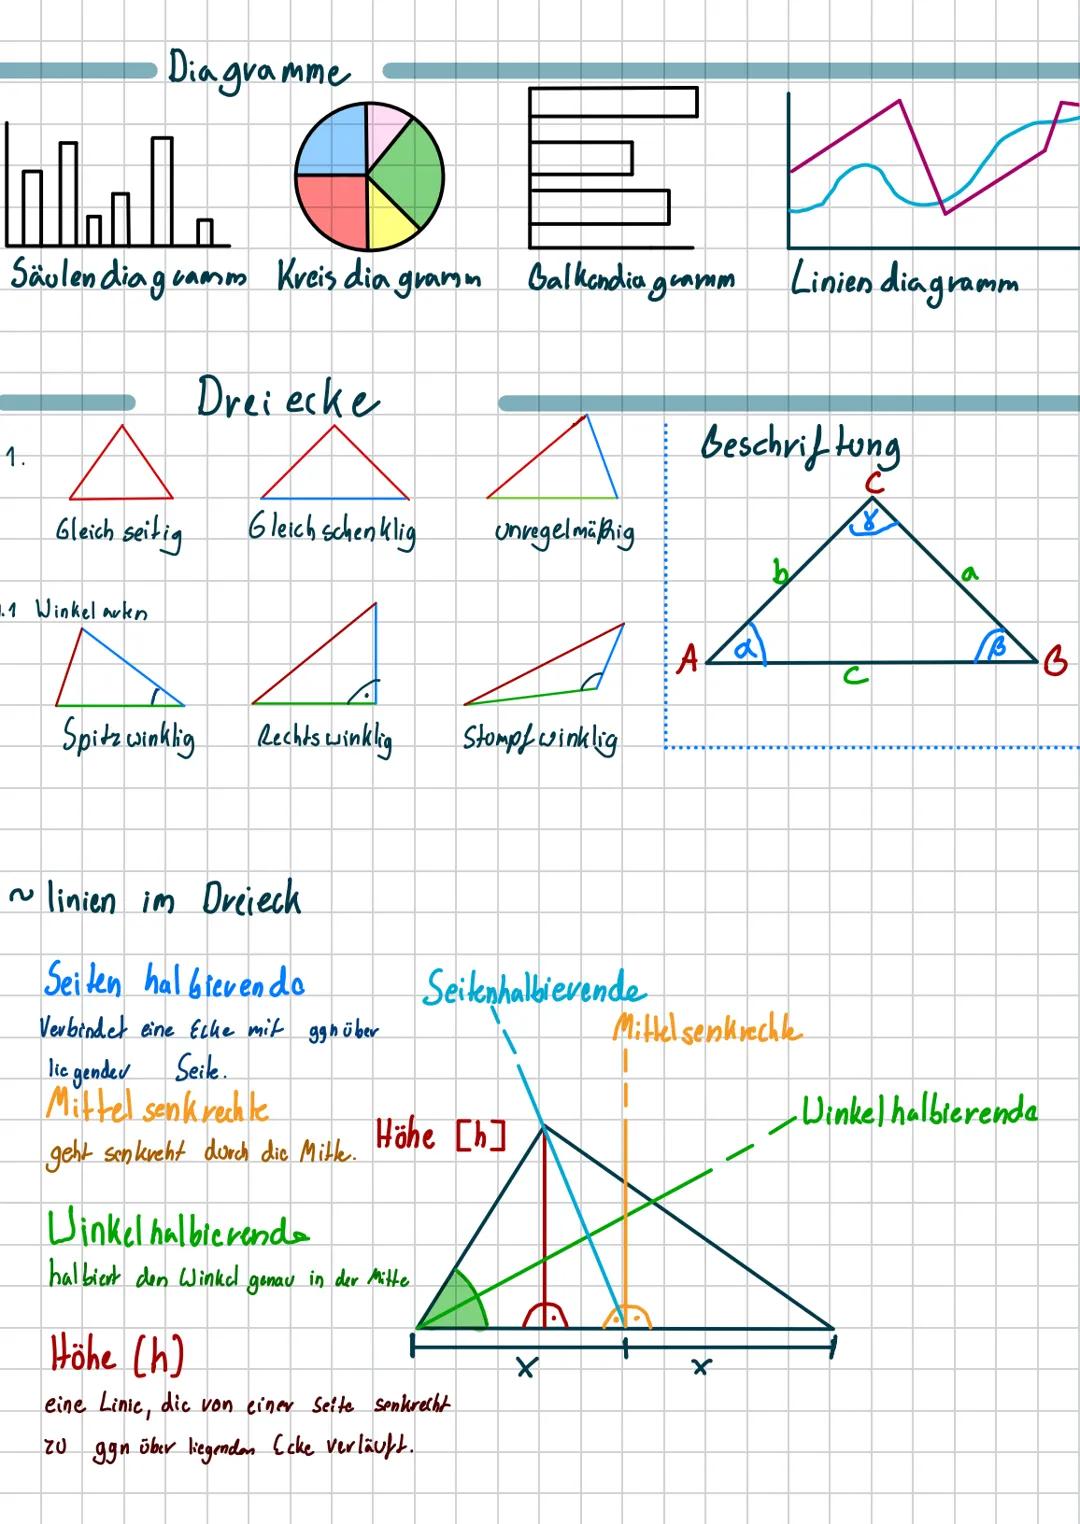 Diagramme
Säulendiagramm Kreisdiagramm Balkendiagramm Liniendiagramm
Dreiecke
1.
Gleichseitig Gleichschenklig unregelmäßig
Beschriftung
C
γ
b a
A α β B
c
.1 Winkelarten
Spitzwinklig Rechtswinklig Stumpfwinklig
~ linien im Dreieck
Seitenhalbierende
Verbindet eine Ecke mit ggnüber
liegender Seite.
Mittelsenkrechte
geht senkreht durch die Mitte.
Winkelhalbierende
halbiert den Winkel genau in der Mitte
Höhe (h)
eine Linie, die von einer Seite senkrecht
zu ggnüber liegenden Ecke verläuft.
Seitenhalbierende
Mittelsenkrechte
Winkelhalbierende
Höhe [h]
x x